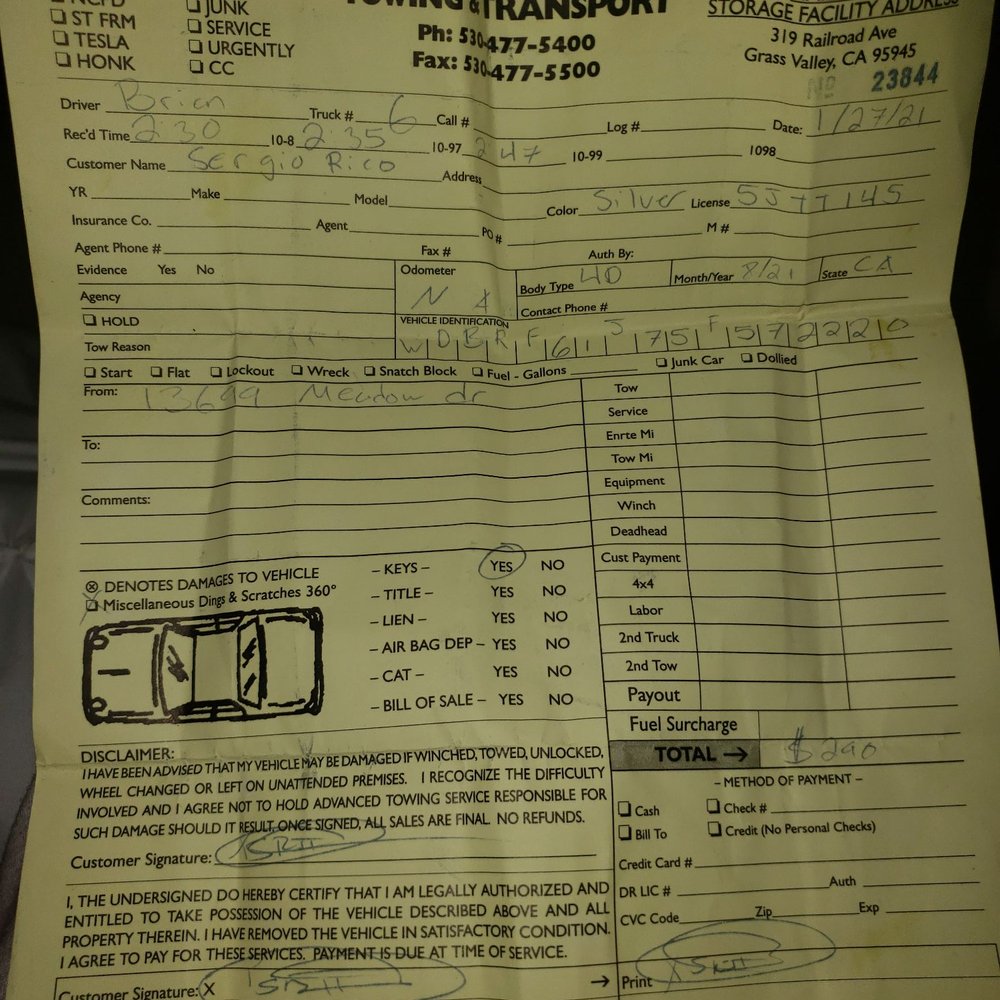 NCPD
☐ ST FRM
☐ TESLA
☐ HONK
☐ JUNK
☐ SERVICE
☐ URGENTLY
☐ CC
TOWING & TRANSPORT
Ph: 530-477-5400
Fax: 530-477-5500
STORAGE FACILITY ADDRESS
319 Railroad Ave
Grass Valley, CA 95945
No 23844
Driver Brian Truck # 6 Call # Log # Date: 1/27/21
Rec'd Time 2:30 10-8 2:35 10-97 2 47 10-99 1098
Customer Name Sergio Rico Address
YR Make Model Color Silver License
Insurance Co. Agent PO # M #
Agent Phone # Fax # Auth By:
Evidence Yes No Odometer Body Type 4D Month/Year 8/21 State CA
Agency N A Contact Phone #
☐ HOLD VEHICLE IDENTIFICATION
Tow Reason W D B R F 6 1 J 7 5 F 5 7 2 2 2 0
☐ Start ☐ Flat ☐ Lockout ☐ Wreck ☐ Snatch Block ☐ Fuel - Gallons ☐ Junk Car ☐ Dollied
From: 13699 Meadow dr
To:
Comments:
Tow
Service
Enrte Mi
Tow Mi
Equipment
Winch
Deadhead
Cust Payment
4x4
Labor
2nd Truck
2nd Tow
Payout
Fuel Surcharge
TOTAL → $290
⊗ DENOTES DAMAGES TO VEHICLE
☐ Miscellaneous Dings & Scratches 360°
– KEYS – YES NO
– TITLE – YES NO
– LIEN – YES NO
– AIR BAG DEP – YES NO
– CAT – YES NO
– BILL OF SALE – YES NO
DISCLAIMER:
I HAVE BEEN ADVISED THAT MY VEHICLE MAY BE DAMAGED IF WINCHED, TOWED, UNLOCKED,
WHEEL CHANGED OR LEFT ON UNATTENDED PREMISES. I RECOGNIZE THE DIFFICULTY
INVOLVED AND I AGREE NOT TO HOLD ADVANCED TOWING SERVICE RESPONSIBLE FOR
SUCH DAMAGE SHOULD IT RESULT. ONCE SIGNED, ALL SALES ARE FINAL. NO REFUNDS.
Customer Signature:
I, THE UNDERSIGNED DO HEREBY CERTIFY THAT I AM LEGALLY AUTHORIZED AND
ENTITLED TO TAKE POSSESSION OF THE VEHICLE DESCRIBED ABOVE AND ALL
PROPERTY THEREIN. I HAVE REMOVED THE VEHICLE IN SATISFACTORY CONDITION.
I AGREE TO PAY FOR THESE SERVICES. PAYMENT IS DUE AT TIME OF SERVICE.
Customer Signature: X → Print
– METHOD OF PAYMENT –
☐ Cash ☐ Check #
☐ Bill To ☐ Credit (No Personal Checks)
Credit Card #
DR LIC # Auth
CVC Code Zip Exp